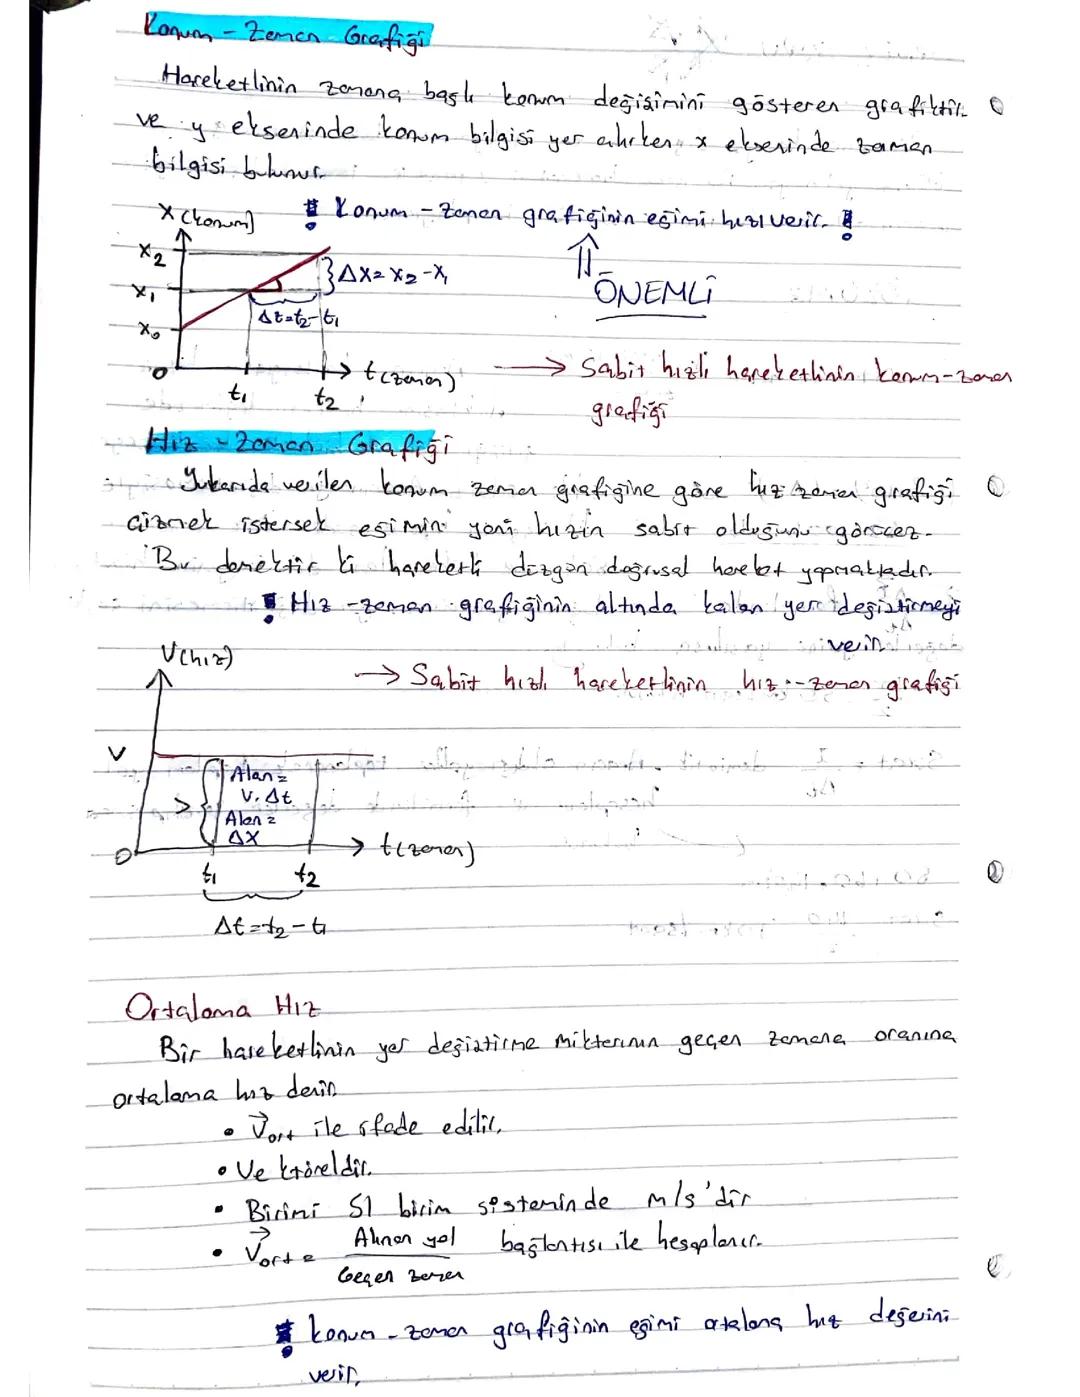 Konum - Zaman Grafiği
Hareketlinin zamana bağlı konum değişimini gösteren grafiktir
ve y ekseninde konum bilgisi yer alırken x ekseninde zaman
bilgisi bulunur.
X (konum)
! Konum - Zaman grafiğinin eğimi hızı verir. !
X2
Δx = X2 - X1
X1
ÖNEMLİ
Δt = t2 - t1
X0
0
t1
t2
t (zaman)
→ Sabit hızlı hareketlinin konum-zaman
grafiği
Hız - Zaman Grafiği
Yukarıda verilen konum zaman grafiğine göre hız zaman grafiği
çizmek istersek eğimin yani hızın sabit olduğunu görücez.
Bu demektir ki hareketli düzgün doğrusal hareket yapmaktadır.
! Hız - zaman grafiğinin altında kalan yer değiştirmeyi
verir.
V (hız)
→ Sabit hızlı hareketlinin hız - zaman grafiği
V
Alan =
V. Δt
V
Alan =
ΔX
0
t (zaman)
t1
t2
Δt = t2 - t1
Ortalama Hız
Bir hareketlinin yer değiştirme miktarının geçen zamana oranına
ortalama hız denir.
• Vort ile ifade edilir.
• Vektöreldir.
• Birimi SI birim sisteminde m/s'dir
• Vort = Alınan yol / Geçen zaman bağlantısı ile hesaplanır.
! konum - zaman grafiğinin eğimi ortalama hız değerini
verir.